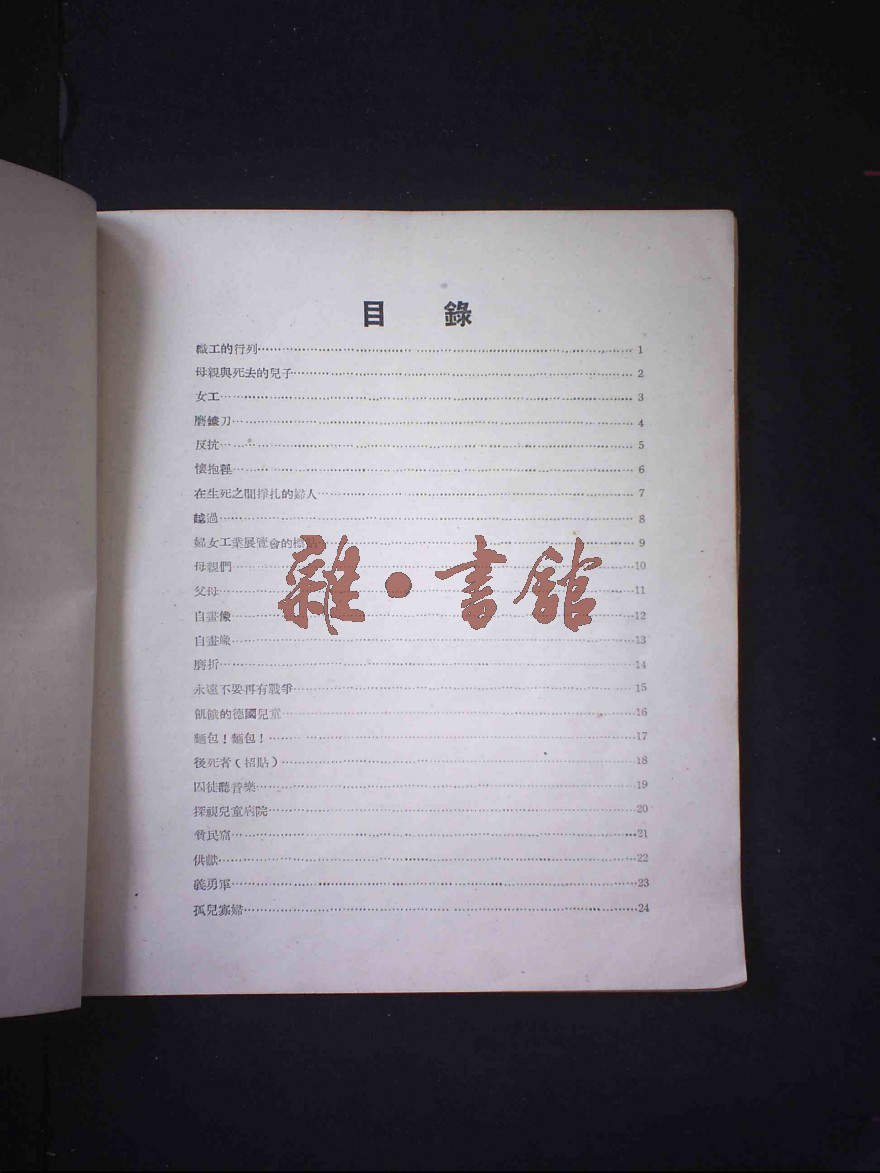 目 錄
織工的行列 1
母親與死去的兒子 2
女工 3
磨鐮刀 4
反抗 5
懷抱裡 6
在生死之間掙扎的婦人 7
越過 8
婦女工業展覽會的標貼 9
母親們 10
父母 11
自畫像 12
自畫像 13
磨折 14
永遠不要再有戰爭 15
飢餓的德國兒童 16
麵包！麵包！ 17
後死者（招貼） 18
囚徒聽音樂 19
探視兒童病院 20
貧民窟 21
供獻 22
義勇軍 23
孤兒寡婦 24
雜·書館